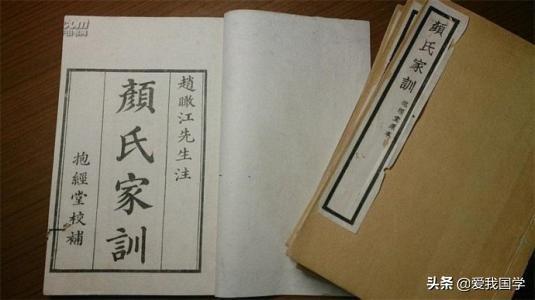 趙瞰江先生注
顏氏家訓
抱經堂校補
顏氏家訓
头条 @爱我国学